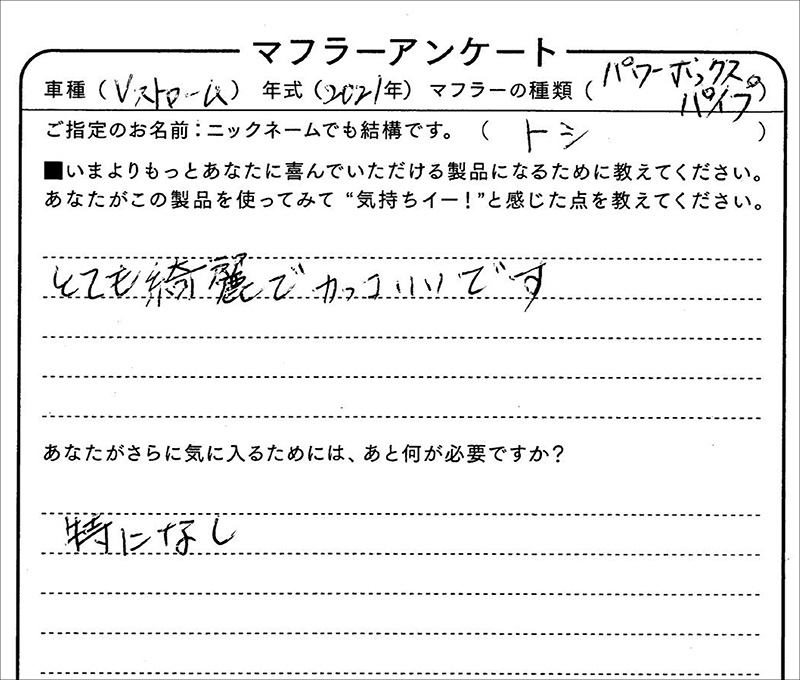 マフラーアンケート
車種（Vストローム） 年式（2021年） マフラーの種類（パワーボックスパイプ）
ご指定のお名前：ニックネームでも結構です。（トシ）
■いまよりもっとあなたに喜んでいただける製品になるために教えてください。
あなたがこの製品を使ってみて“気持ちイー！”と感じた点を教えてください。
とても綺麗でカッコいいです
あなたがさらに気に入るためには、あと何が必要ですか？
特になし